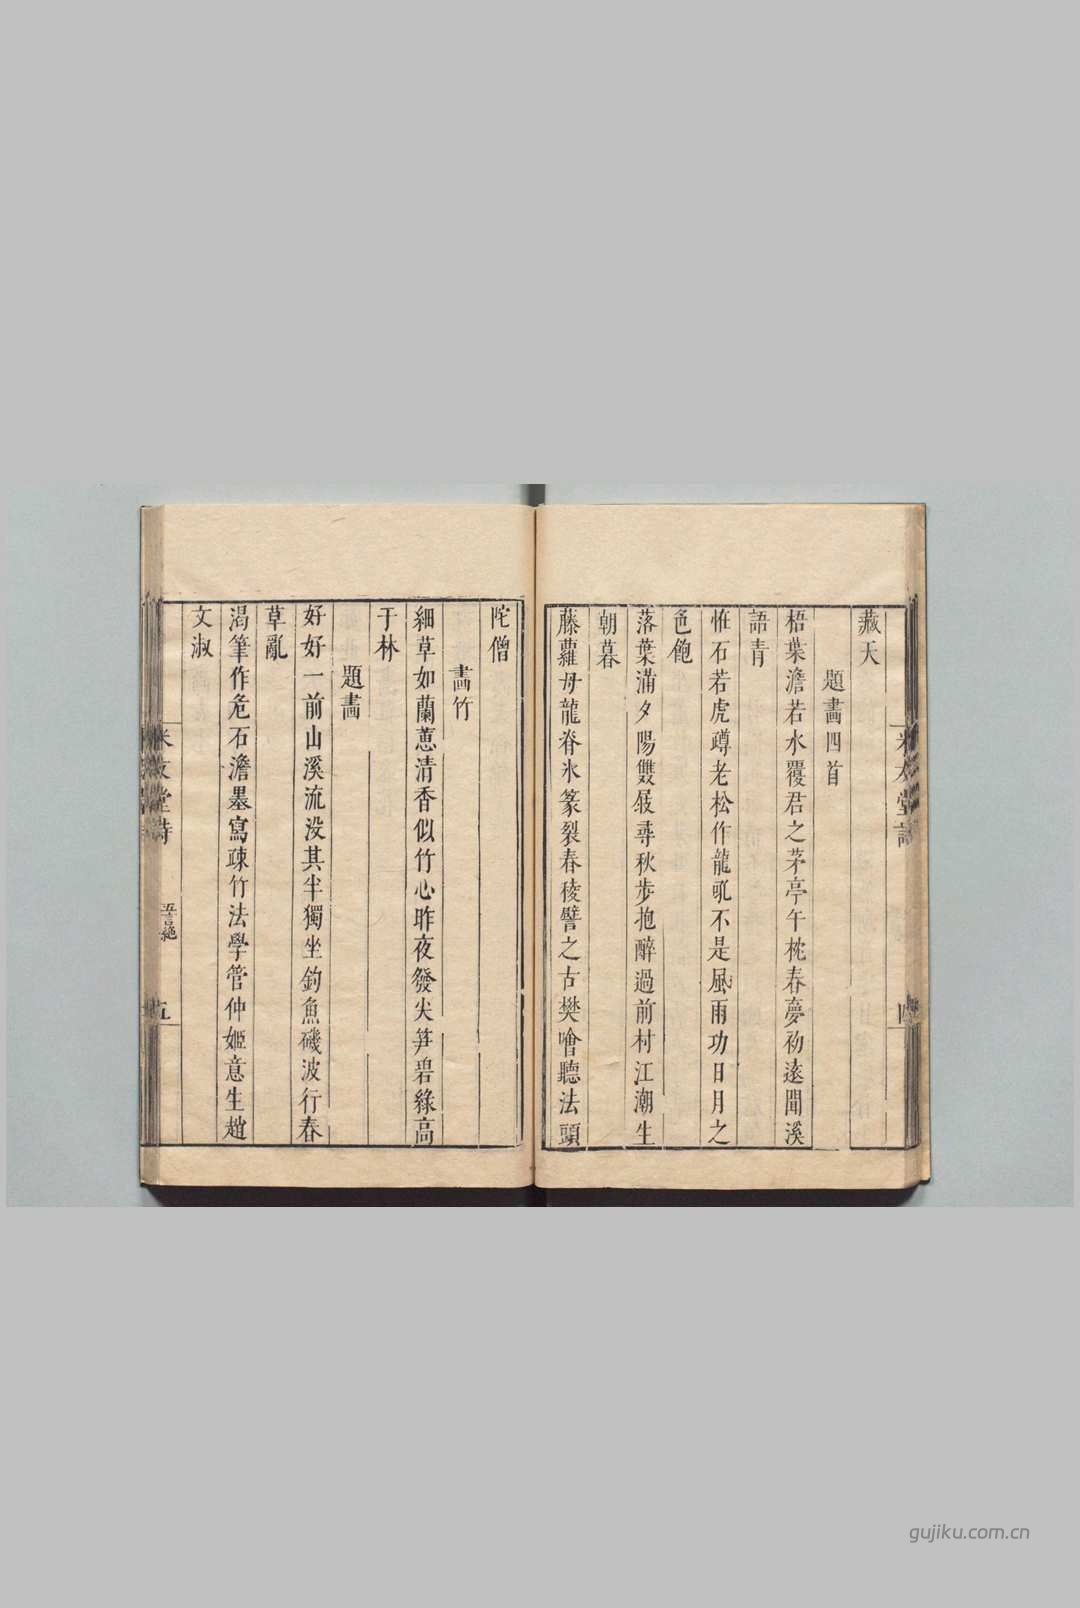 藏天
題畵四首
梧葉澹若水覆君之茅亭午枕春夢初遠聞溪
語青
恠石若虎蹲老松作龍吼不是風雨功日月之
色飽
落葉滿夕陽雙屐尋秋步抱醉過前村江潮生
朝暮
藤蘿母龍脊氷篆裂春稜譬之古樊噲聽法頭
陀僧
畵竹
細草如蘭蕙清香似竹心昨夜發尖笋碧綠高
于林
題畵
好好一前山溪流没其半獨坐鈎魚磯波行春
草亂
渴筆作危石澹墨寫疎竹法學管仲姬意生趙
文淑
米友堂詩
五言絶
五
gujiku.com.cn